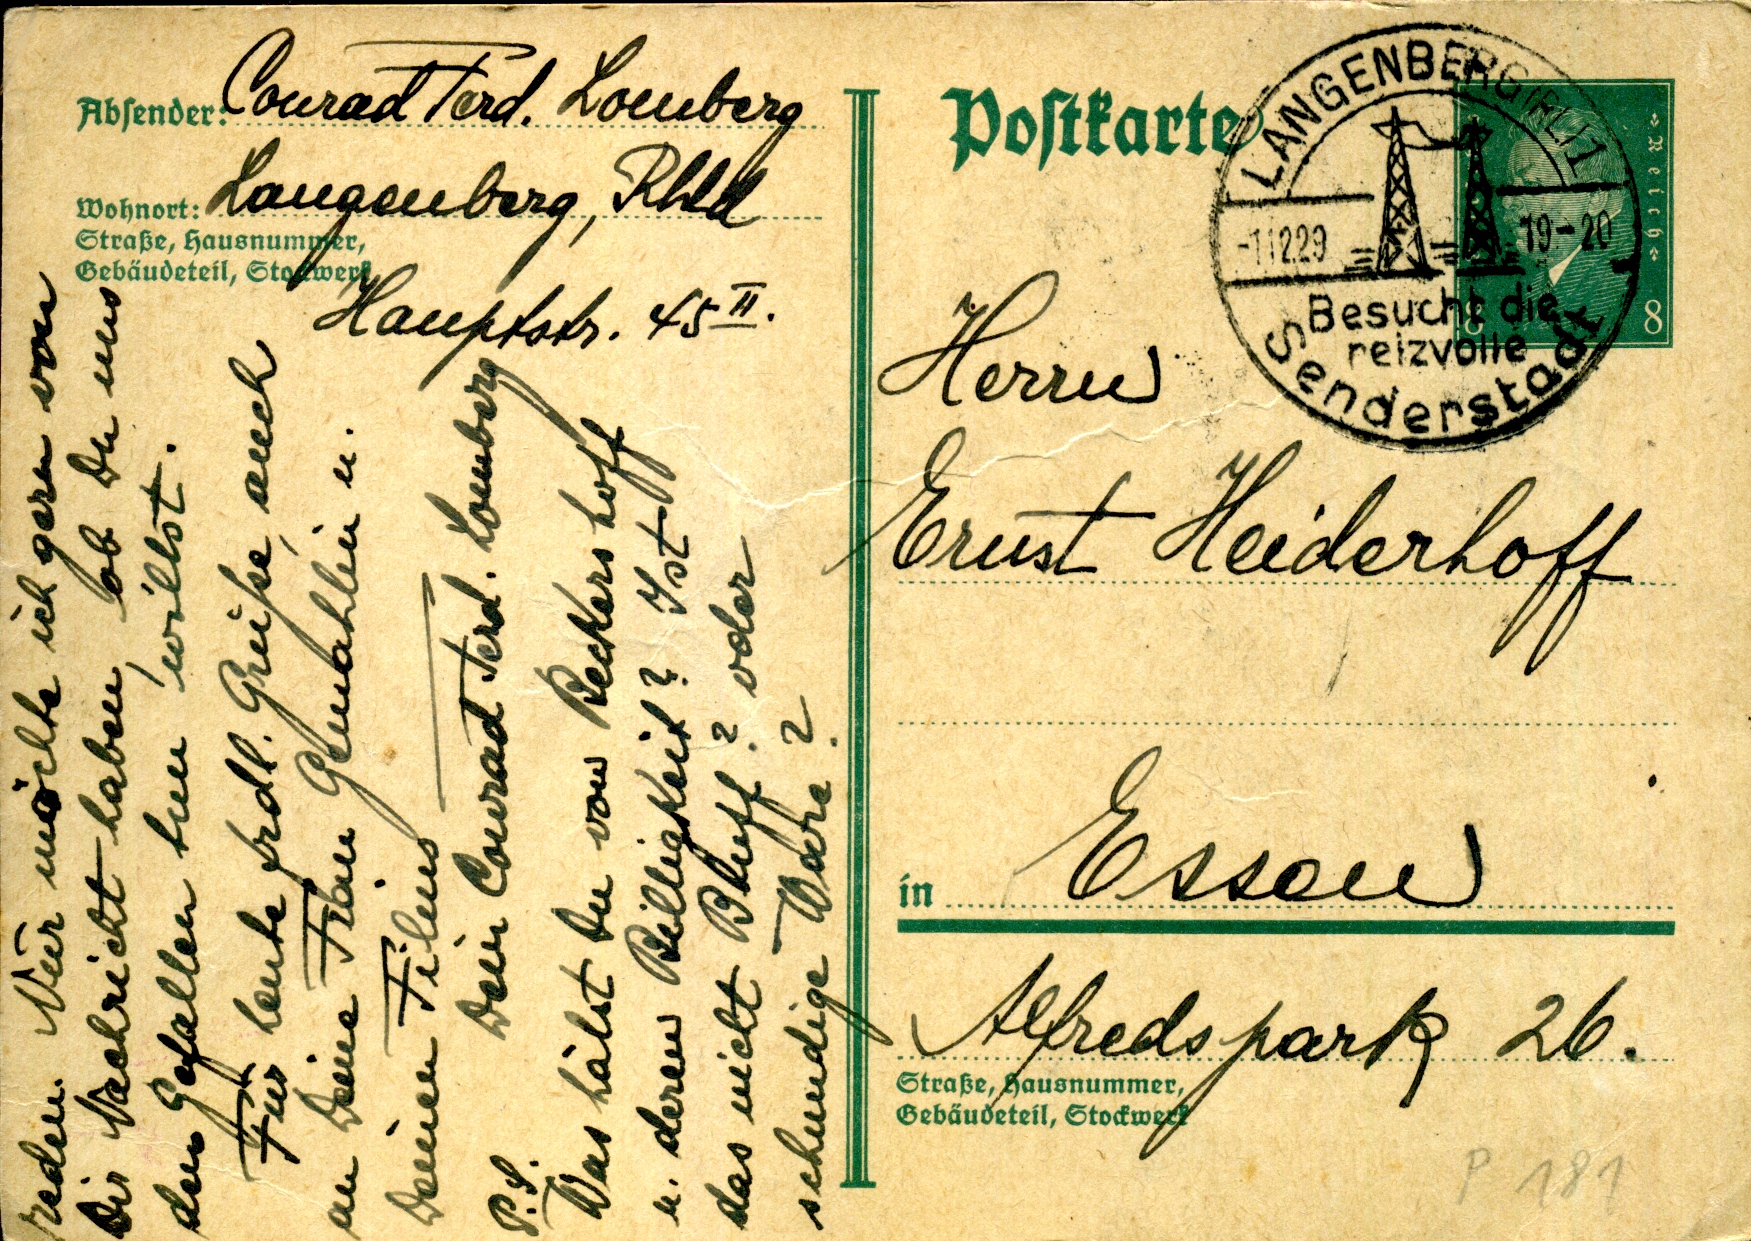 Absender: Conrad Ferd. Lomberg
Wohnort: Langenberg, Rhld
Straße, Hausnummer,
Gebäudeteil, Stockwerk
Hauptstr. 45 II.
Postkarte
LANGENBERG (RHL) 1
-1.12.29
19-20
Besucht die
reizvolle
Senderstadt
Reich
8
8
Herrn
Ernst Heiderhoff
in Essen
Alfredspark 26.
Straße, Hausnummer,
Gebäudeteil, Stockwerk
P 181
reden. Nur möchte ich gern von
Dir Nachricht haben, ob Du uns
den Gefallen tun willst.
Für heute frdl. Grüße, auch
an Deine Frau Gemahlin u.
Deinen Filius
Dein Conrad Ferd. Lomberg
P.S.
Was hälst Du von Beckershoff
u. deren Billigkeit? Ist
das nicht Bluff? oder
schundige Ware?